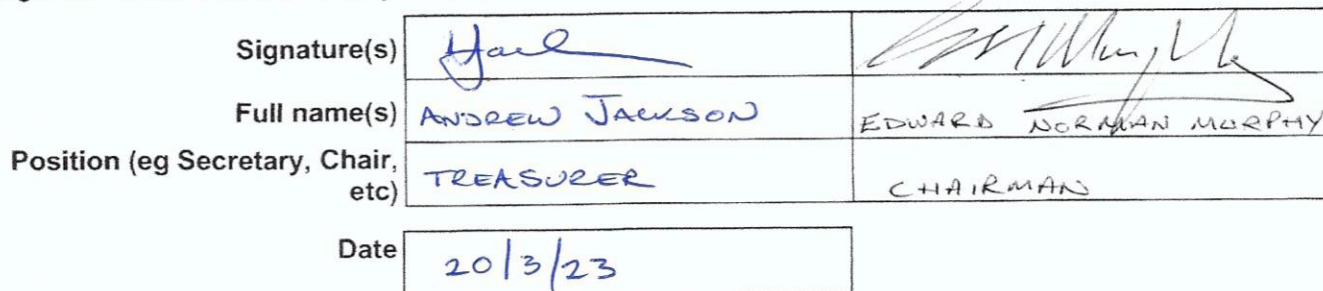 Signature(s)
Full name(s) ANDREW JACKSON EDWARD NORMAN MURPHY
Position (eg Secretary, Chair, etc) TREASURER CHAIRMAN
Date 20/3/23